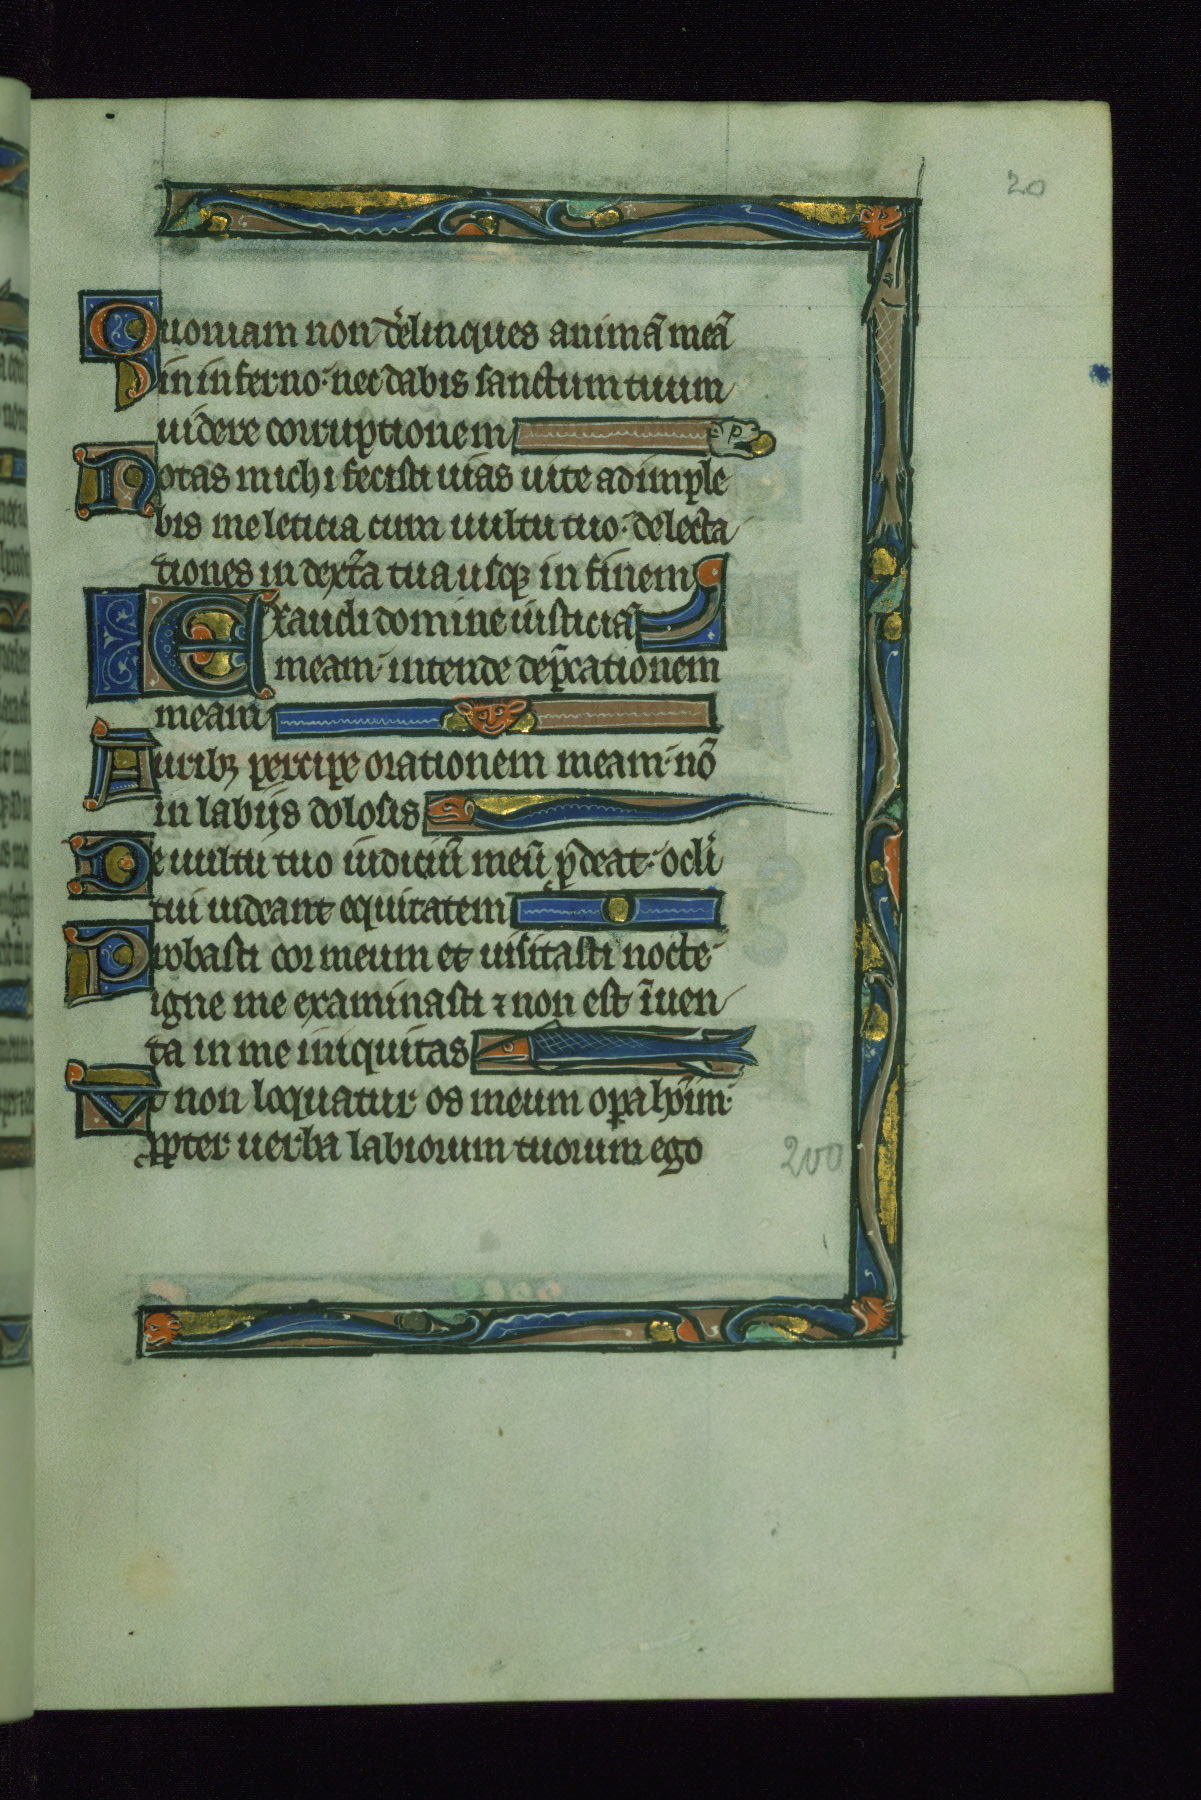 20
Quoniam non delinques animā meā
in inferno· nec dabis sanctum tuum
uidere corruptionem
Notas michi fecisti uias uite adimple
bis me leticia cum uultu tuo· delecta
tiones in dext̄a tua usq; in finem
Exaudi domine iusticiā
meam· intende dep̄cationem
meam
Aurib; percipe orationem meam· nō
in labijs dolosis
De uultu tuo iudiciū meū p̄deat· oclī
tui uideant equitatem
Probasti cor meum et uisitasti nocte·
igne me examinasti ⁊ non est īuen
ta in me iniquitas
Vt non loquatur os meum opa hoīm·
ꝓpter uerba labiorum tuorum ego
200